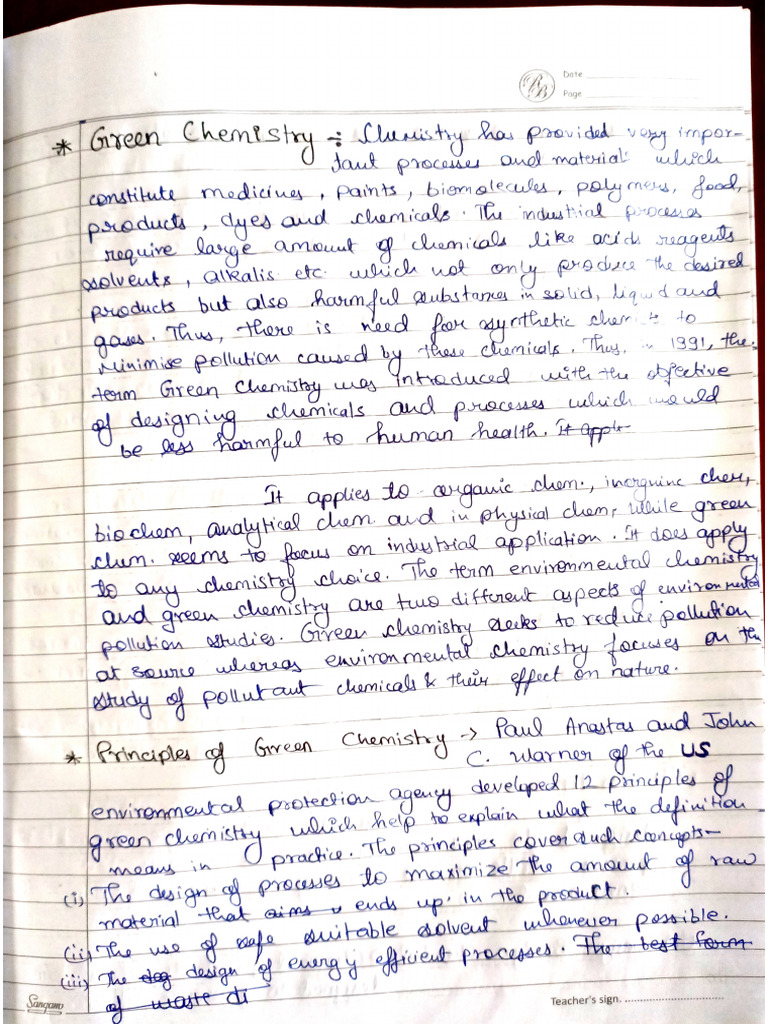 RB
Date
Page
* Green Chemistry ÷ Chemistry has provided very impor-
tant processes and material which
constitute medicines, paints, biomolecules, polymers, food,
products, dyes and chemicals. The industrial processes
require large amount of chemicals like acids reagents
solvents, alkalis etc. which not only produce the desired
products but also harmful substances in solid, liquid and
gases. Thus, there is need for synthetic to
minimise pollution caused by these chemicals. Thus, in 1991, the
term Green Chemistry was introduced with the objective
of designing chemicals and processes which would
be less harmful to human health. It apple
It applies to organic chem., chem,
biochem, analytical chem and in physical chem, while green
chem. seems to focus on industrial application. It does apply
to any chemistry choice. The term environmental chemistry
and green chemistry are two different aspects of environmental
pollution studies. Green chemistry seeks to reduce pollution
at source whereas environmental chemistry focuses on the
study of pollutant chemicals & their effect on nature.
* Principles of Green Chemistry → Paul Anastas and John
C. Warner of the US
environmental protection agency developed 12 principles of
green chemistry which help to explain what the definition
means in practice. The principles cover such concepts-
(i) The design of processes to maximize the amount of raw
material that aims ends up in the product.
(ii) The use of safe suitable solvent whenever possible.
(iii) The deg design of energy efficient processes. The best form
of waste di
Sangam
Teacher's sign.